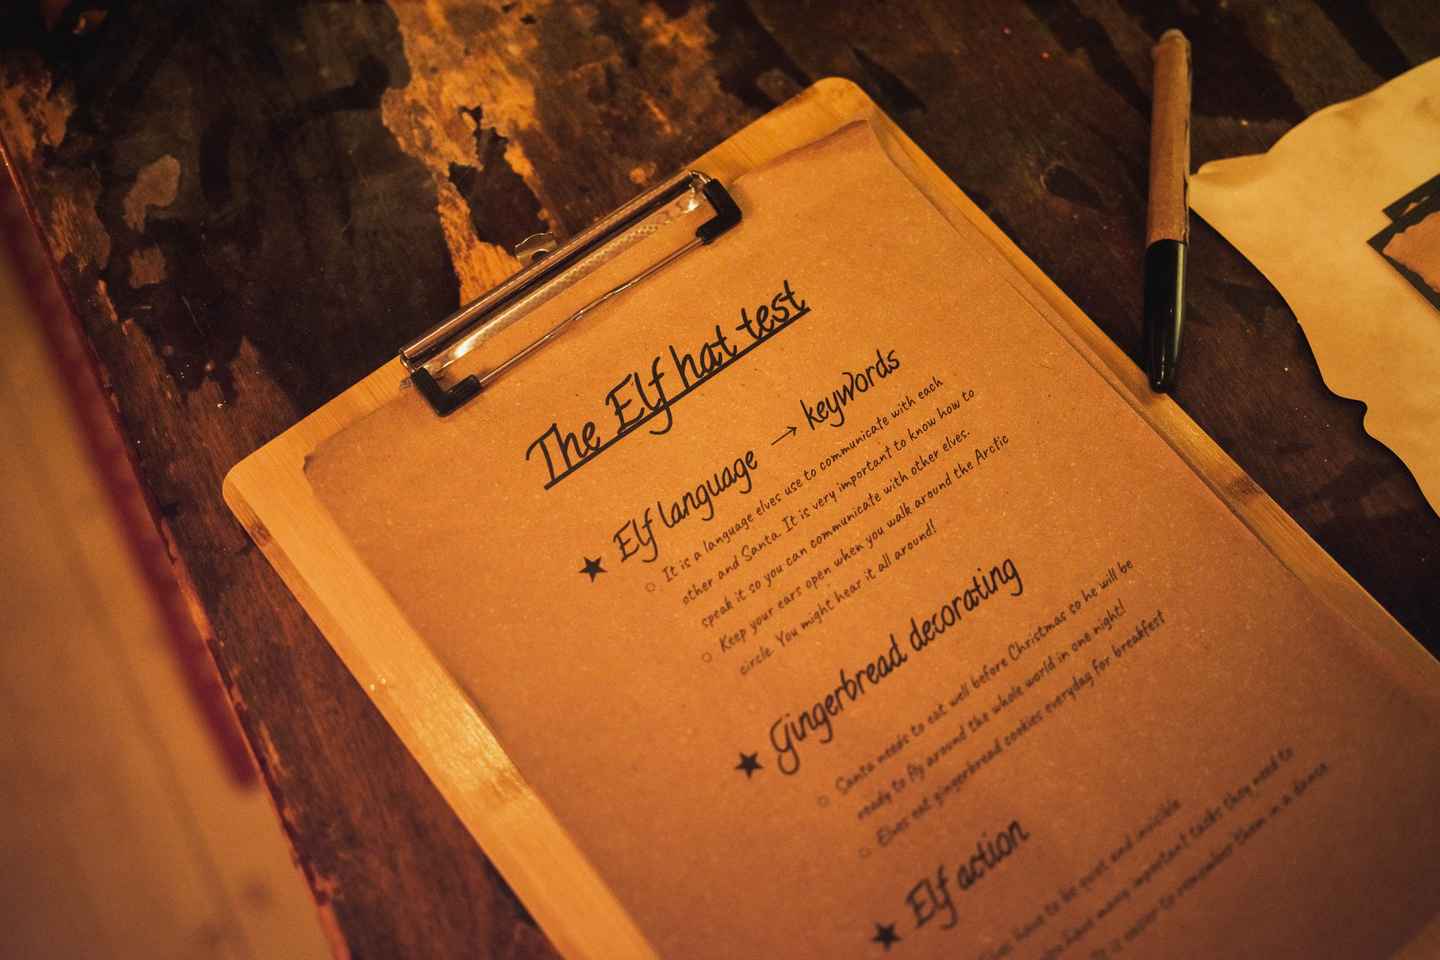 The Elf hat test
★ Elf language → keywords
○ It is a language elves use to communicate with each
other and Santa. It is very important to know how to
speak it so you can communicate with other elves.
○ Keep your ears open when you walk around the Arctic
circle. You might hear it all around!
★ Gingerbread decorating
○ Santa needs to eat well before Christmas so he will be
ready to fly around the whole world in one night!
○ Elves eat gingerbread cookies everyday for breakfast
★ Elf action
have to be quiet and invisible
have many important tasks they need to
is easier to remember them in a dance